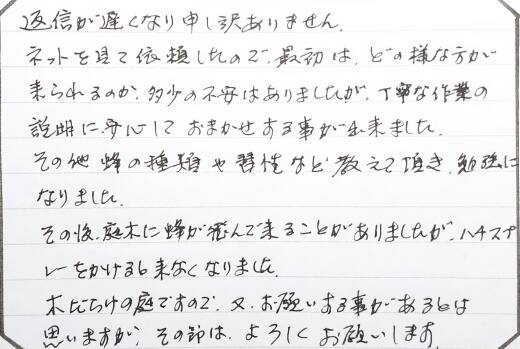 返信が遅くなり申し訳ありません。
ネットを見て依頼したので、最初は、どの様な方が
来られるのか、多少の不安はありましたが、丁寧な作業の
説明に安心して おまかせする事が出来ました。
その他 蜂の種類や習性など教えて頂き、勉強に
なりました。
その後、庭木に蜂が飛んで来ることがありましたが、ハチスプ
レーをかけると来なくなりました。
木だらけの庭ですので、又、お願いする事があるとは
思いますが、その節は、よろしくお願いします。